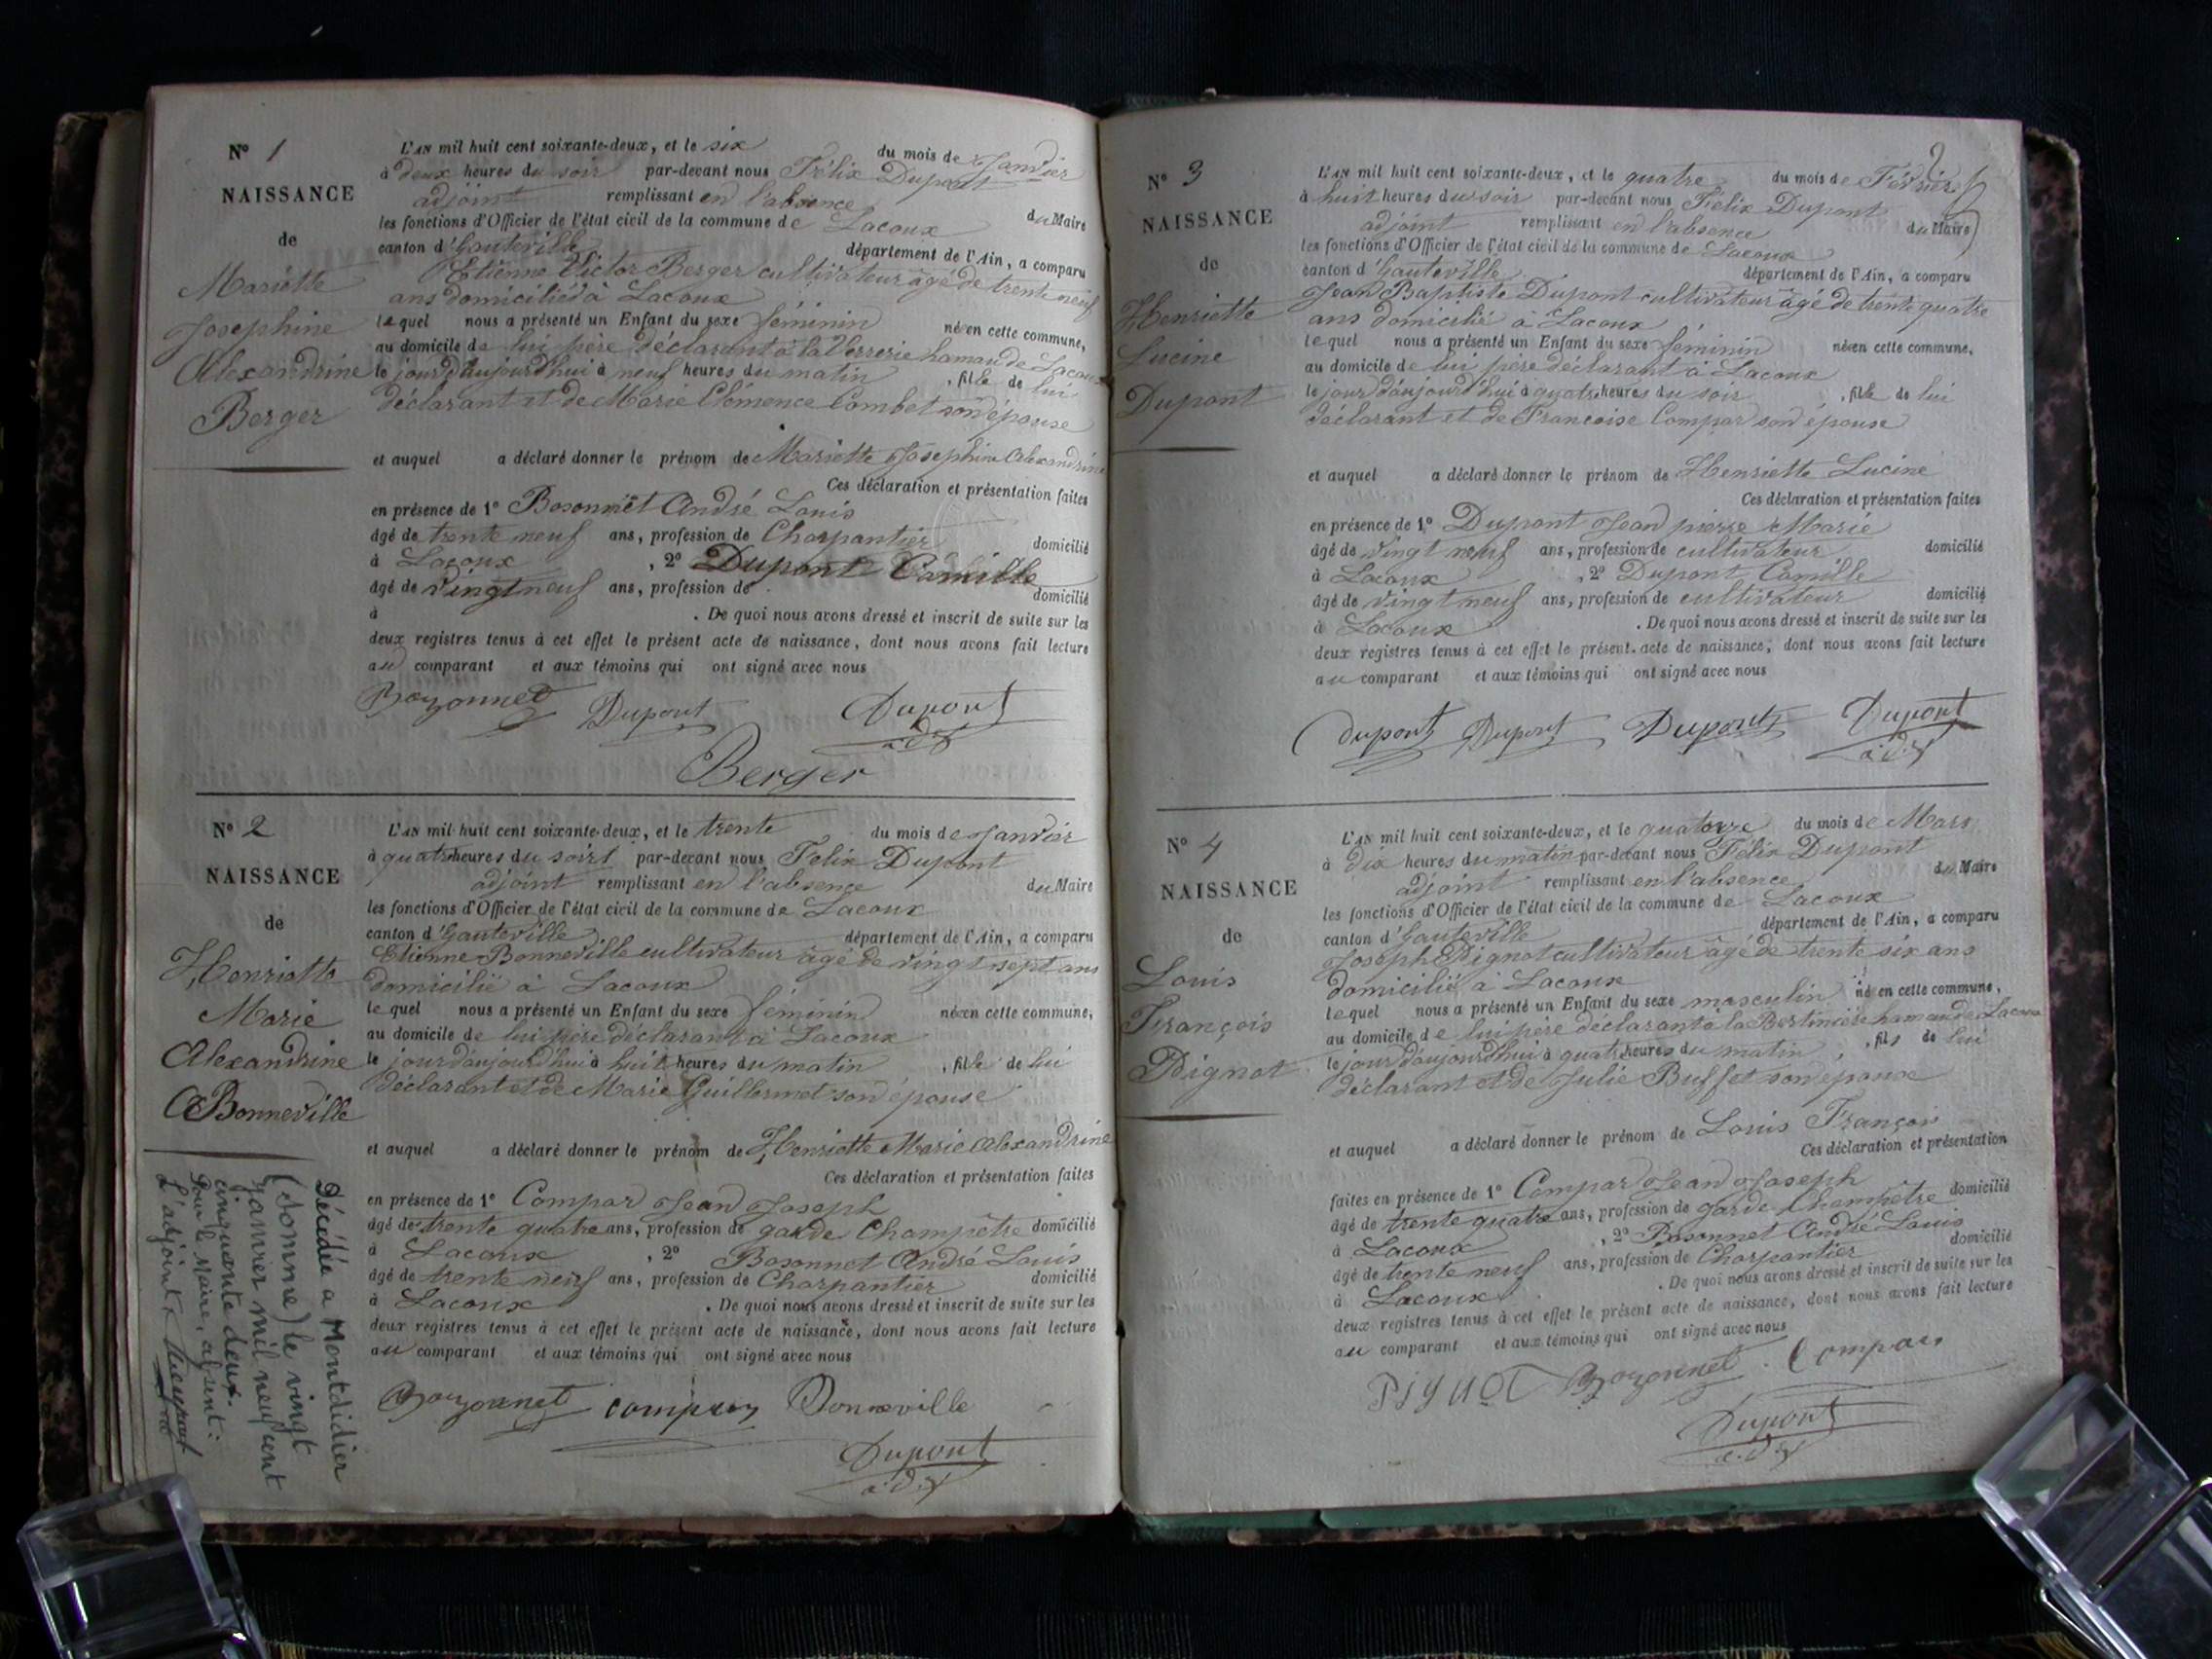 N° 1
NAISSANCE
de
Mariette
Josephine
Alexandrine
Berger
L'AN mil huit cent soixante-deux, et le six du mois de Janvier
à deux heures du soir par-devant nous Félix Dupont
adjoint remplissant en l'absence du Maire
les fonctions d'Officier de l'état civil de la commune de Lacoux
canton d'Hauteville département de l'Ain, a comparu
Etienne Victor Berger cultivateur âgé de trente neuf
ans domicilié à Lacoux
lequel nous a présenté un Enfant du sexe féminin née en cette commune,
au domicile de lui père déclarant à la Verrerie hamau de Lacoux
le jour d'aujourd'hui à neuf heures du matin , fille de lui
déclarant et de Marie Clémence Combet son épouse
et auquel a déclaré donner le prénom de Mariette Josephine Alexandrine
Ces déclaration et présentation faites
en présence de 1° Bosonnet André Louis
âgé de trente neuf ans, profession de Charpantier domicilié
à Lacoux , 2° Dupont Camille
âgé de vingt neuf ans, profession de domicilié
à . De quoi nous avons dressé et inscrit de suite sur les
deux registres tenus à cet effet le présent acte de naissance, dont nous avons fait lecture
au comparant et aux témoins qui ont signé avec nous
Bozonnet Dupont Dupont
adjt
Berger
N° 2
NAISSANCE
de
Henriette
Marie
Alexandrine
Bonneville
L'AN mil huit cent soixante-deux, et le trente du mois de Janvier
à quatre heures du soir par-devant nous Félix Dupont
adjoint remplissant en l'absence du Maire
les fonctions d'Officier de l'état civil de la commune de Lacoux
canton d'Hauteville département de l'Ain, a comparu
Etienne Bonneville cultivateur âgé de vingt sept ans
domicilié à Lacoux
lequel nous a présenté un Enfant du sexe féminin née en cette commune,
au domicile de lui père déclarant à Lacoux
le jour d'aujourd'hui à huit heures du matin , fille de lui
déclarant et de Marie Guillermet son épouse
et auquel a déclaré donner le prénom de Henriette Marie Alexandrine
Ces déclaration et présentation faites
en présence de 1° Compar Jean Joseph
âgé de trente quatre ans, profession de garde Champêtre domicilié
à Lacoux , 2° Bosonnet André Louis
âgé de trente neuf ans, profession de Charpantier domicilié
à Lacoux . De quoi nous avons dressé et inscrit de suite sur les
deux registres tenus à cet effet le présent acte de naissance, dont nous avons fait lecture
au comparant et aux témoins qui ont signé avec nous
Bozonnet compar Bonneville
Dupont
adjt
Décédée a Montdidier
(Somme) le vingt
janvier mil neuf cent
cinquante deux.
Pour le Maire, absent:
L'adjoint,
N° 3
NAISSANCE
de
Henriette
Lucine
Dupont
L'AN mil huit cent soixante-deux, et le quatre du mois de Février
à huit heures du soir par-devant nous Félix Dupont
adjoint remplissant en l'absence du Maire
les fonctions d'Officier de l'état civil de la commune de Lacoux
canton d'Hauteville département de l'Ain, a comparu
Jean Baptiste Dupont cultivateur âgé de trente quatre
ans domicilié à Lacoux
lequel nous a présenté un Enfant du sexe féminin née en cette commune,
au domicile de lui père déclarant à Lacoux
le jour d'aujourd'hui à quatre heures du soir , fille de lui
déclarant et de Francoise Compar son épouse
et auquel a déclaré donner le prénom de Henriette Lucine
Ces déclaration et présentation faites
en présence de 1° Dupont Jean pierre Marie
âgé de vingt neuf ans, profession de cultivateur domicilié
à Lacoux , 2° Dupont Camille
âgé de vingt neuf ans, profession de cultivateur domicilié
à Lacoux . De quoi nous avons dressé et inscrit de suite sur les
deux registres tenus à cet effet le présent acte de naissance, dont nous avons fait lecture
au comparant et aux témoins qui ont signé avec nous
dupont Dupont Dupont Dupont
adjt
N° 4
NAISSANCE
de
Louis
François
Pignot
L'AN mil huit cent soixante-deux, et le quatorze du mois de Mars
à dix heures du matin par-devant nous Félix Dupont
adjoint remplissant en l'absence du Maire
les fonctions d'Officier de l'état civil de la commune de Lacoux
canton d'Hauteville département de l'Ain, a comparu
Joseph Pignot cultivateur âgé de trente six ans
domicilié à Lacoux
lequel nous a présenté un Enfant du sexe masculin né en cette commune,
au domicile de lui père déclarant à la Bertinière hamau de Lacoux
le jour d'aujourd'hui à quatre heures du matin , fils de lui
déclarant et de Julie Buffet son épouse
et auquel a déclaré donner le prénom de Louis François
Ces déclaration et présentation
faites en présence de 1° Compar Jean Joseph
âgé de trente quatre ans, profession de garde Champêtre domicilié
à Lacoux , 2° Bosonnet André Louis
âgé de trente neuf ans, profession de Charpantier domicilié
à Lacoux . De quoi nous avons dressé et inscrit de suite sur les
deux registres tenus à cet effet le présent acte de naissance, dont nous avons fait lecture
au comparant et aux témoins qui ont signé avec nous
Pignot Bozonnet Compar
Dupont
adjt